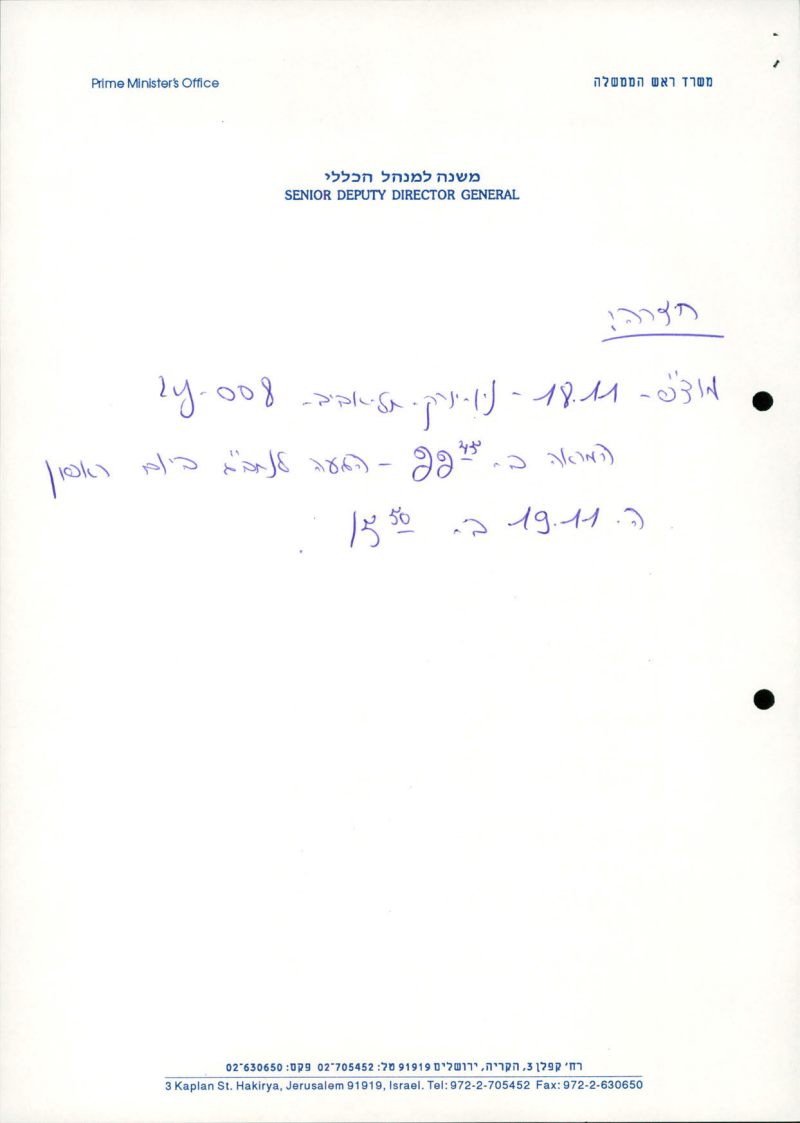 Prime Minister's Office
משרד ראש הממשלה
משנה למנהל הכללי
SENIOR DEPUTY DIRECTOR GENERAL
חזרה:
מוצ"ש - 18.11 - ניו-יורק - תל-אביב - LY-008
המראה ב- 22 45 - הגעה לנתב"ג ביום ראשון
ה- 19.11 ב- 15 50
רח' קפלן 3, הקריה, ירושלים 91919 טל: 02-705452 פקס: 02-630650
3 Kaplan St. Hakirya, Jerusalem 91919, Israel. Tel: 972-2-705452 Fax: 972-2-630650